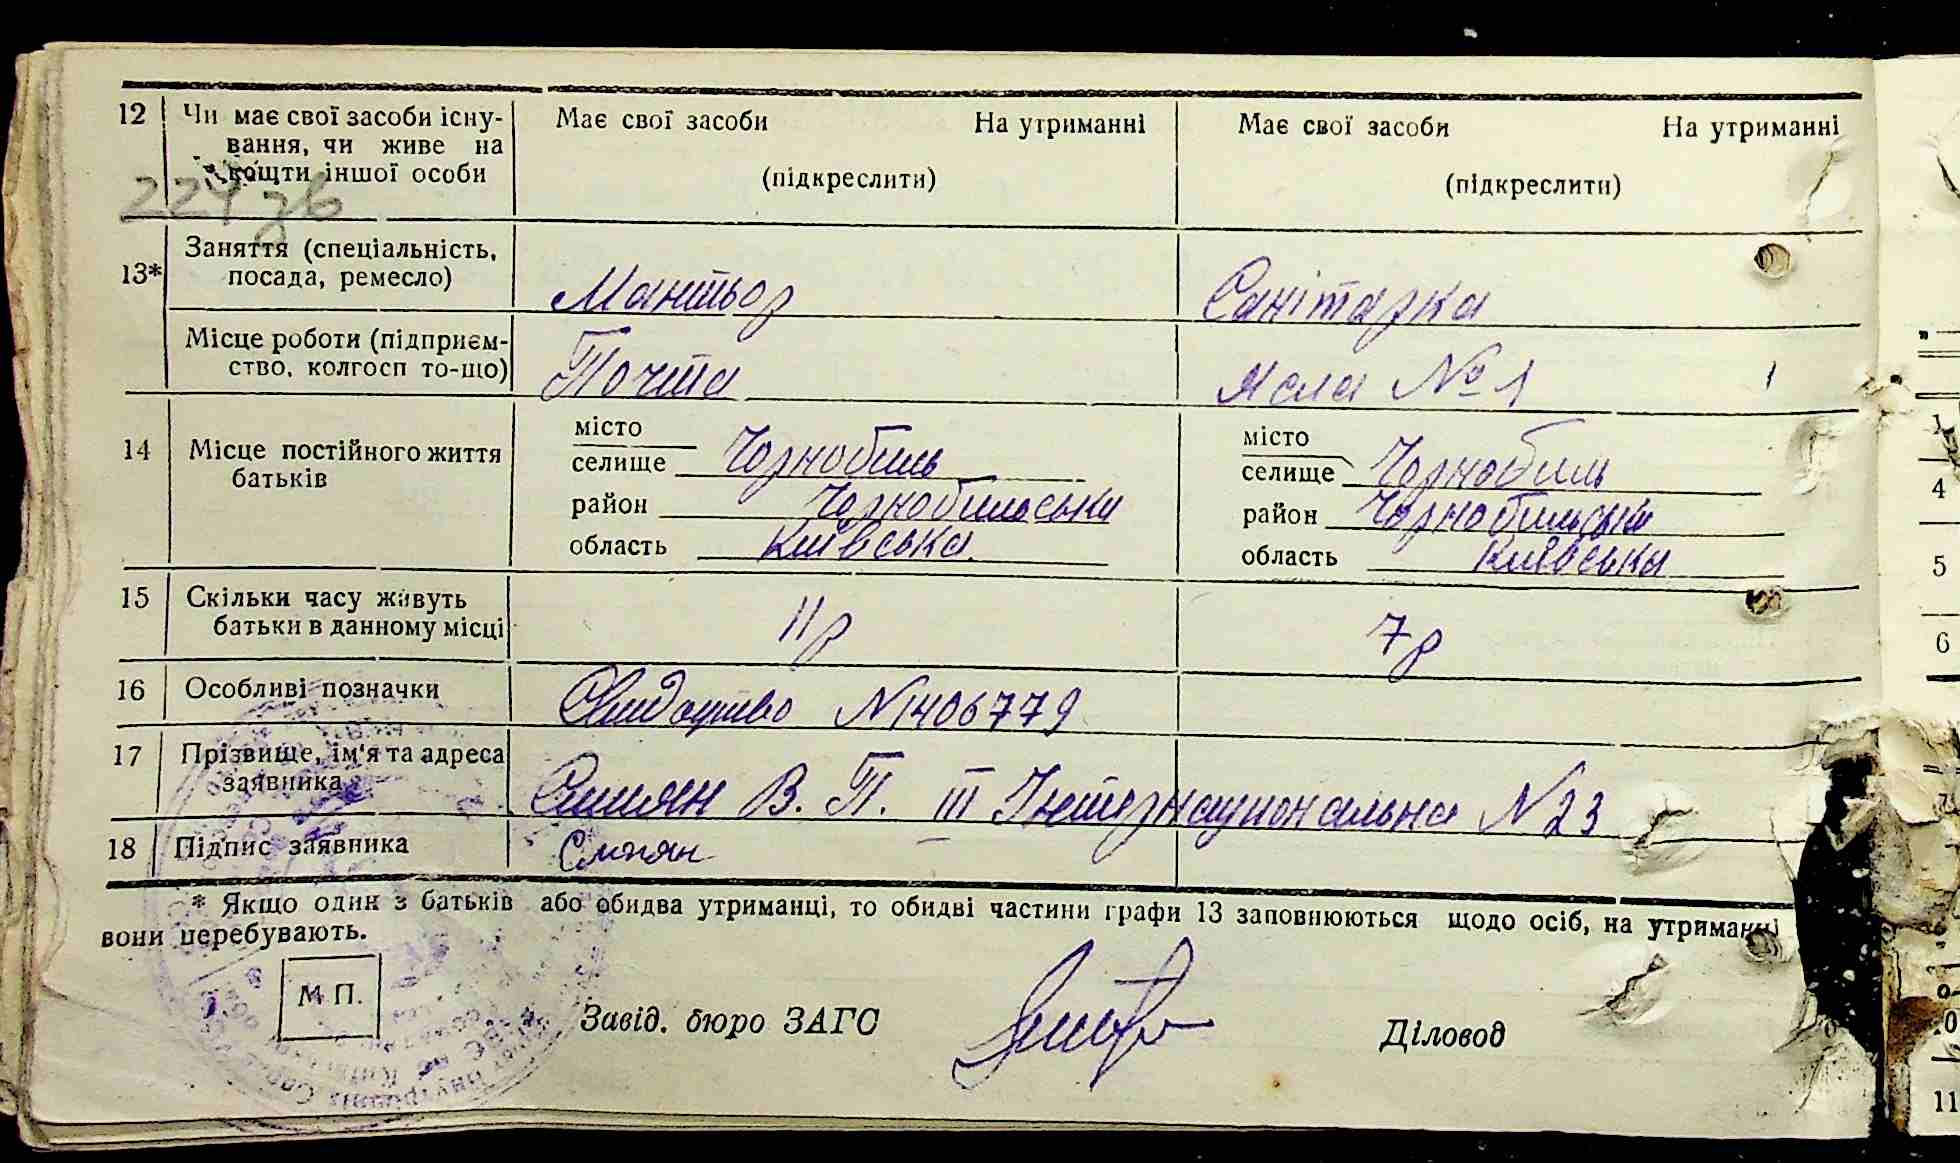 12 Чи має свої засоби існу- Має свої засоби На утриманні Має свої засоби На утриманні
вання, чи живе на
кошти іншої особи (підкреслити) (підкреслити)
224 зв
Заняття (спеціальність,
13* посада, ремесло) Мантьор Санітарка
Місце роботи (підприєм-
ство, колгосп то-що) Почта Ясла №1
14 Місце постійного життя місто місто
батьків селище Чорнобиль селище Чорнобиль
район Чорнобильськи район Чорнобильськи
область Київська область Київська
15 Скільки часу живуть
батьки в данному місці 11 р 7 р
16 Особливі позначки Свидоцтво N 1406779
17 Прізвище, ім'я та адреса
заявника Симоян В. П. ІІІ Інтернаціональна N 23
18 Підпис заявника
* Якщо один з батьків або обидва утриманці, то обидві частини графи 13 заповнюються щодо осіб, на утриманні
вони перебувають.
М П.
Завід. бюро ЗАГС Діловод
4
5
6
11